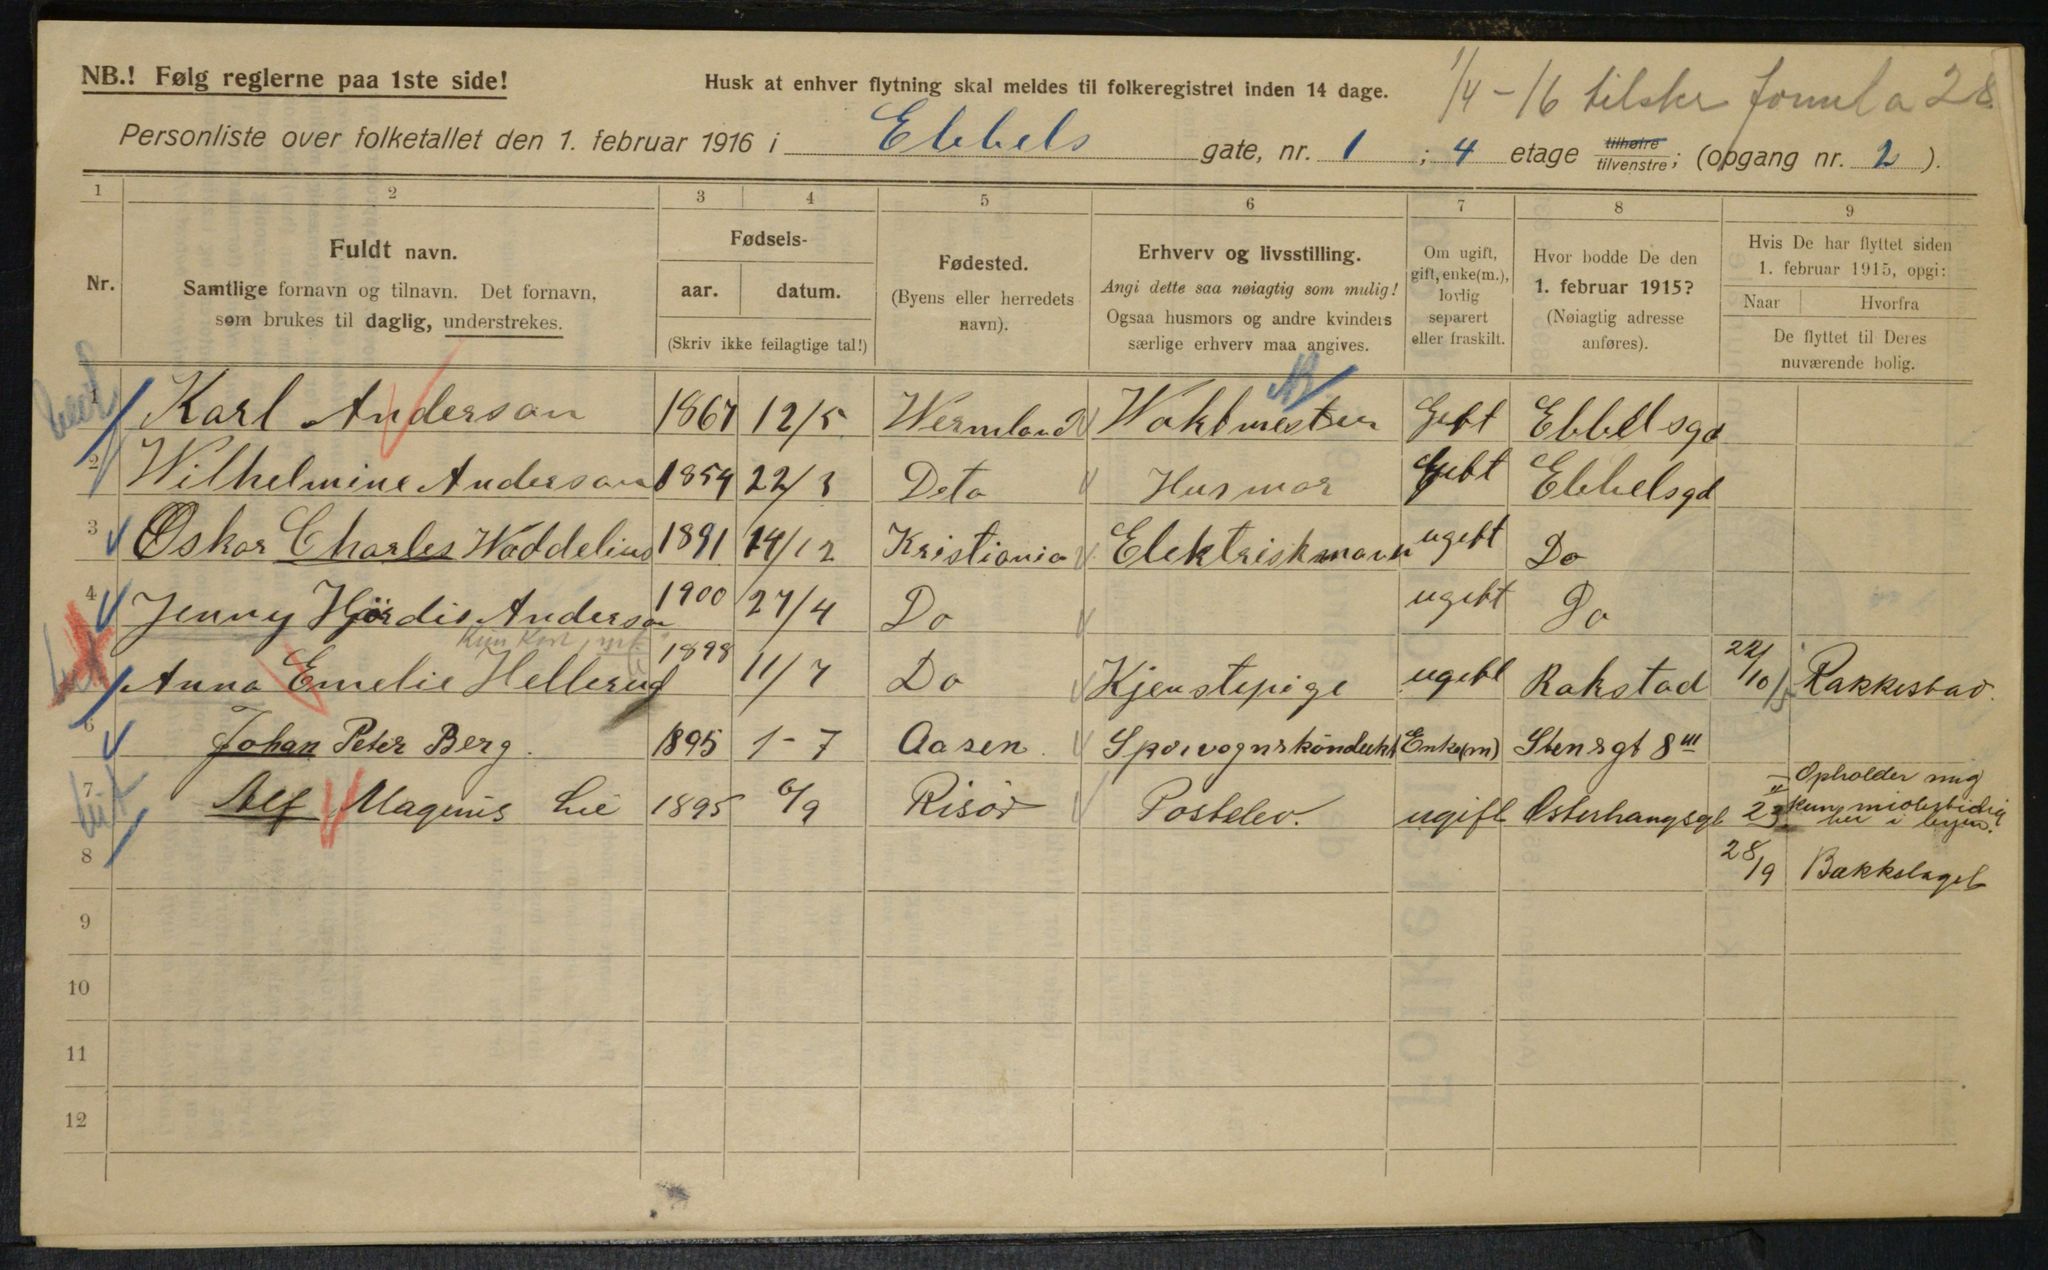 NB.! Følg reglerne paa 1ste side!
Husk at enhver flytning skal meldes til folkeregistret inden 14 dage.
1/4 - 16 28
Personliste over folketallet den 1. februar 1916 i Ebbels gate, nr. 1 ; 4 etage tilhøire tilvenstre; (opgang nr. 2 ).
1 2 3 4 5 6 7 8 9
Nr.
Fuldt navn.
Samtlige fornavn og tilnavn. Det fornavn,
som brukes til daglig, understrekes.
Fødsels-
aar. datum.
(Skriv ikke feilagtige tal!)
Fødested.
(Byens eller herredets
navn).
Erhverv og livsstilling.
Angi dette saa nøiagtig som mulig!
Ogsaa husmors og andre kvinders
særlige erhverv maa angives.
Om ugift,
gift, enke(m.),
lovlig
separert
eller fraskilt.
Hvor bodde De den
1. februar 1915?
(Nøiagtig adresse
anføres).
Hvis De har flyttet siden
1. februar 1915, opgi:
Naar Hvorfra
De flyttet til Deres
nuværende bolig.
1 Karl Anderson 1867 12/5 Wermland Waktmester Gebt Ebbelsgd
2 Wilhelmine Anderson 1854 22/3 Deto Husmor Gebt Ebbelsgd
3 Oskar Charles Waddelius 1891 14/12 Kristiania Elektriskmann ugebt Do
4 Jenny Hjørdis Anderson 1900 27/4 Do ugebt Do
Anna Emelie Hellerud 1898 11/7 Do Kjenstepige ugebt Rakstad 22/10 Rakkestad.
6 Johan Peter Berg. 1895 1-7 Aasen. Sporvognskondukt Enke(m) Stensgt 8 III
7 Alf Magnus Lie 1895 6/9 Risør Postelev. ugift Østerhausgt 23 II Opholder mig
kun midlertidig
her i byen.
8 28/9 Bækkelaget
9
10
11
12